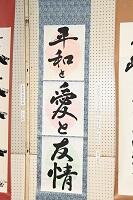 平和と
愛と
友情